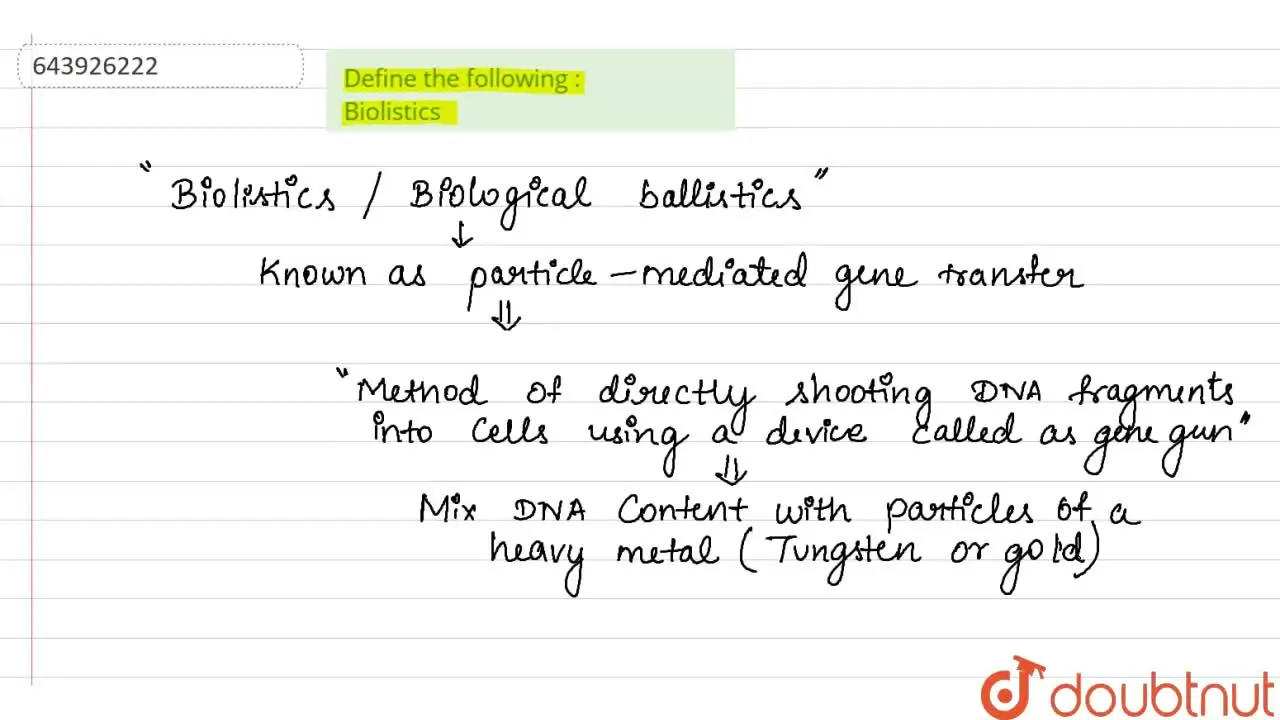 643926222
Define the following :
Biolistics
"Biolistics / Biological ballistics"
↓
Known as particle-mediated gene transfer
⇓
"Method of directly shooting DNA fragments
into cells using a device called as gene gun"
⇓
Mix DNA content with particles of a
heavy metal (Tungsten or gold)
doubtnut